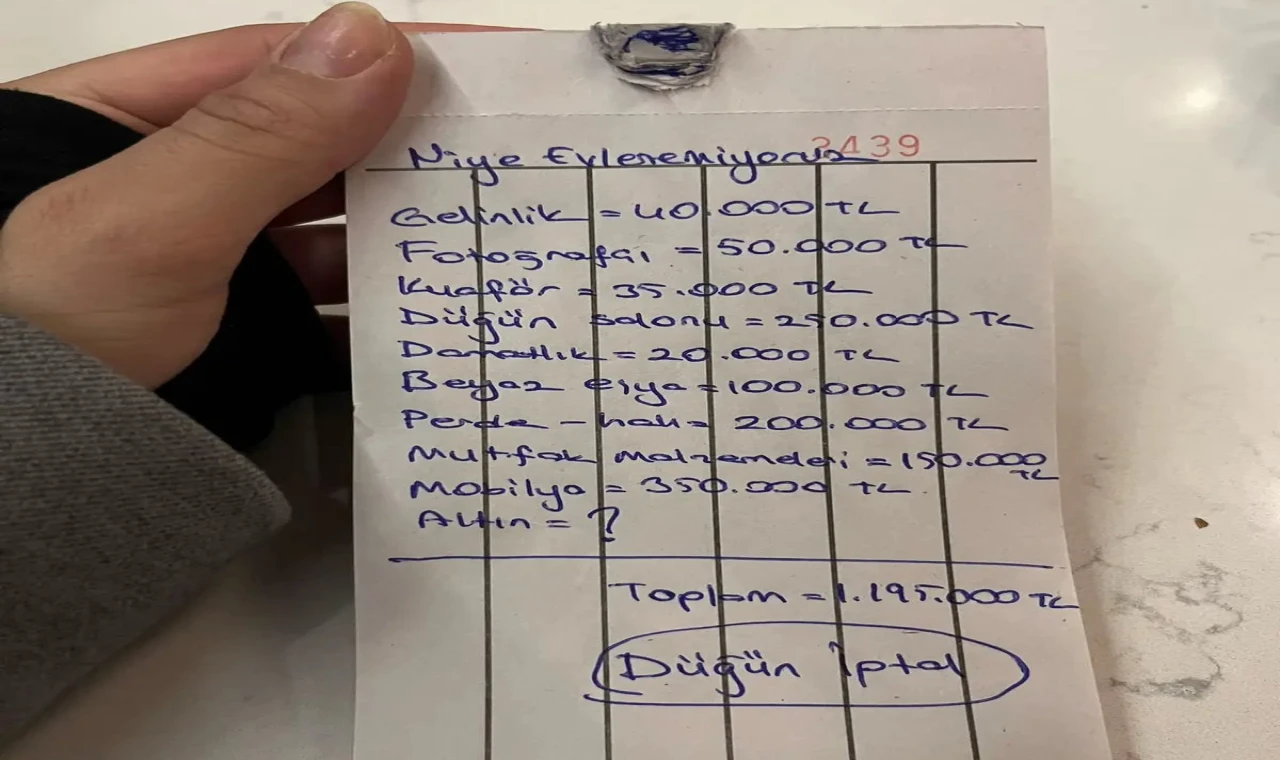 3439
Niye Evleremiyoruz
Gelinlik = 40.000 TL
Fotoğrafçı = 50.000 TL
Kuaför = 35.000 TL
Düğün salonu = 250.000 TL
Damatlık = 20.000 TL
Beyaz eşya = 100.000 TL
Perde - halı = 200.000 TL
Mutfak malzemeleri = 150.000
TL
Mobilya = 350.000 TL
Altın = ?
Toplam = 1.195.000 TL
Düğün İptal